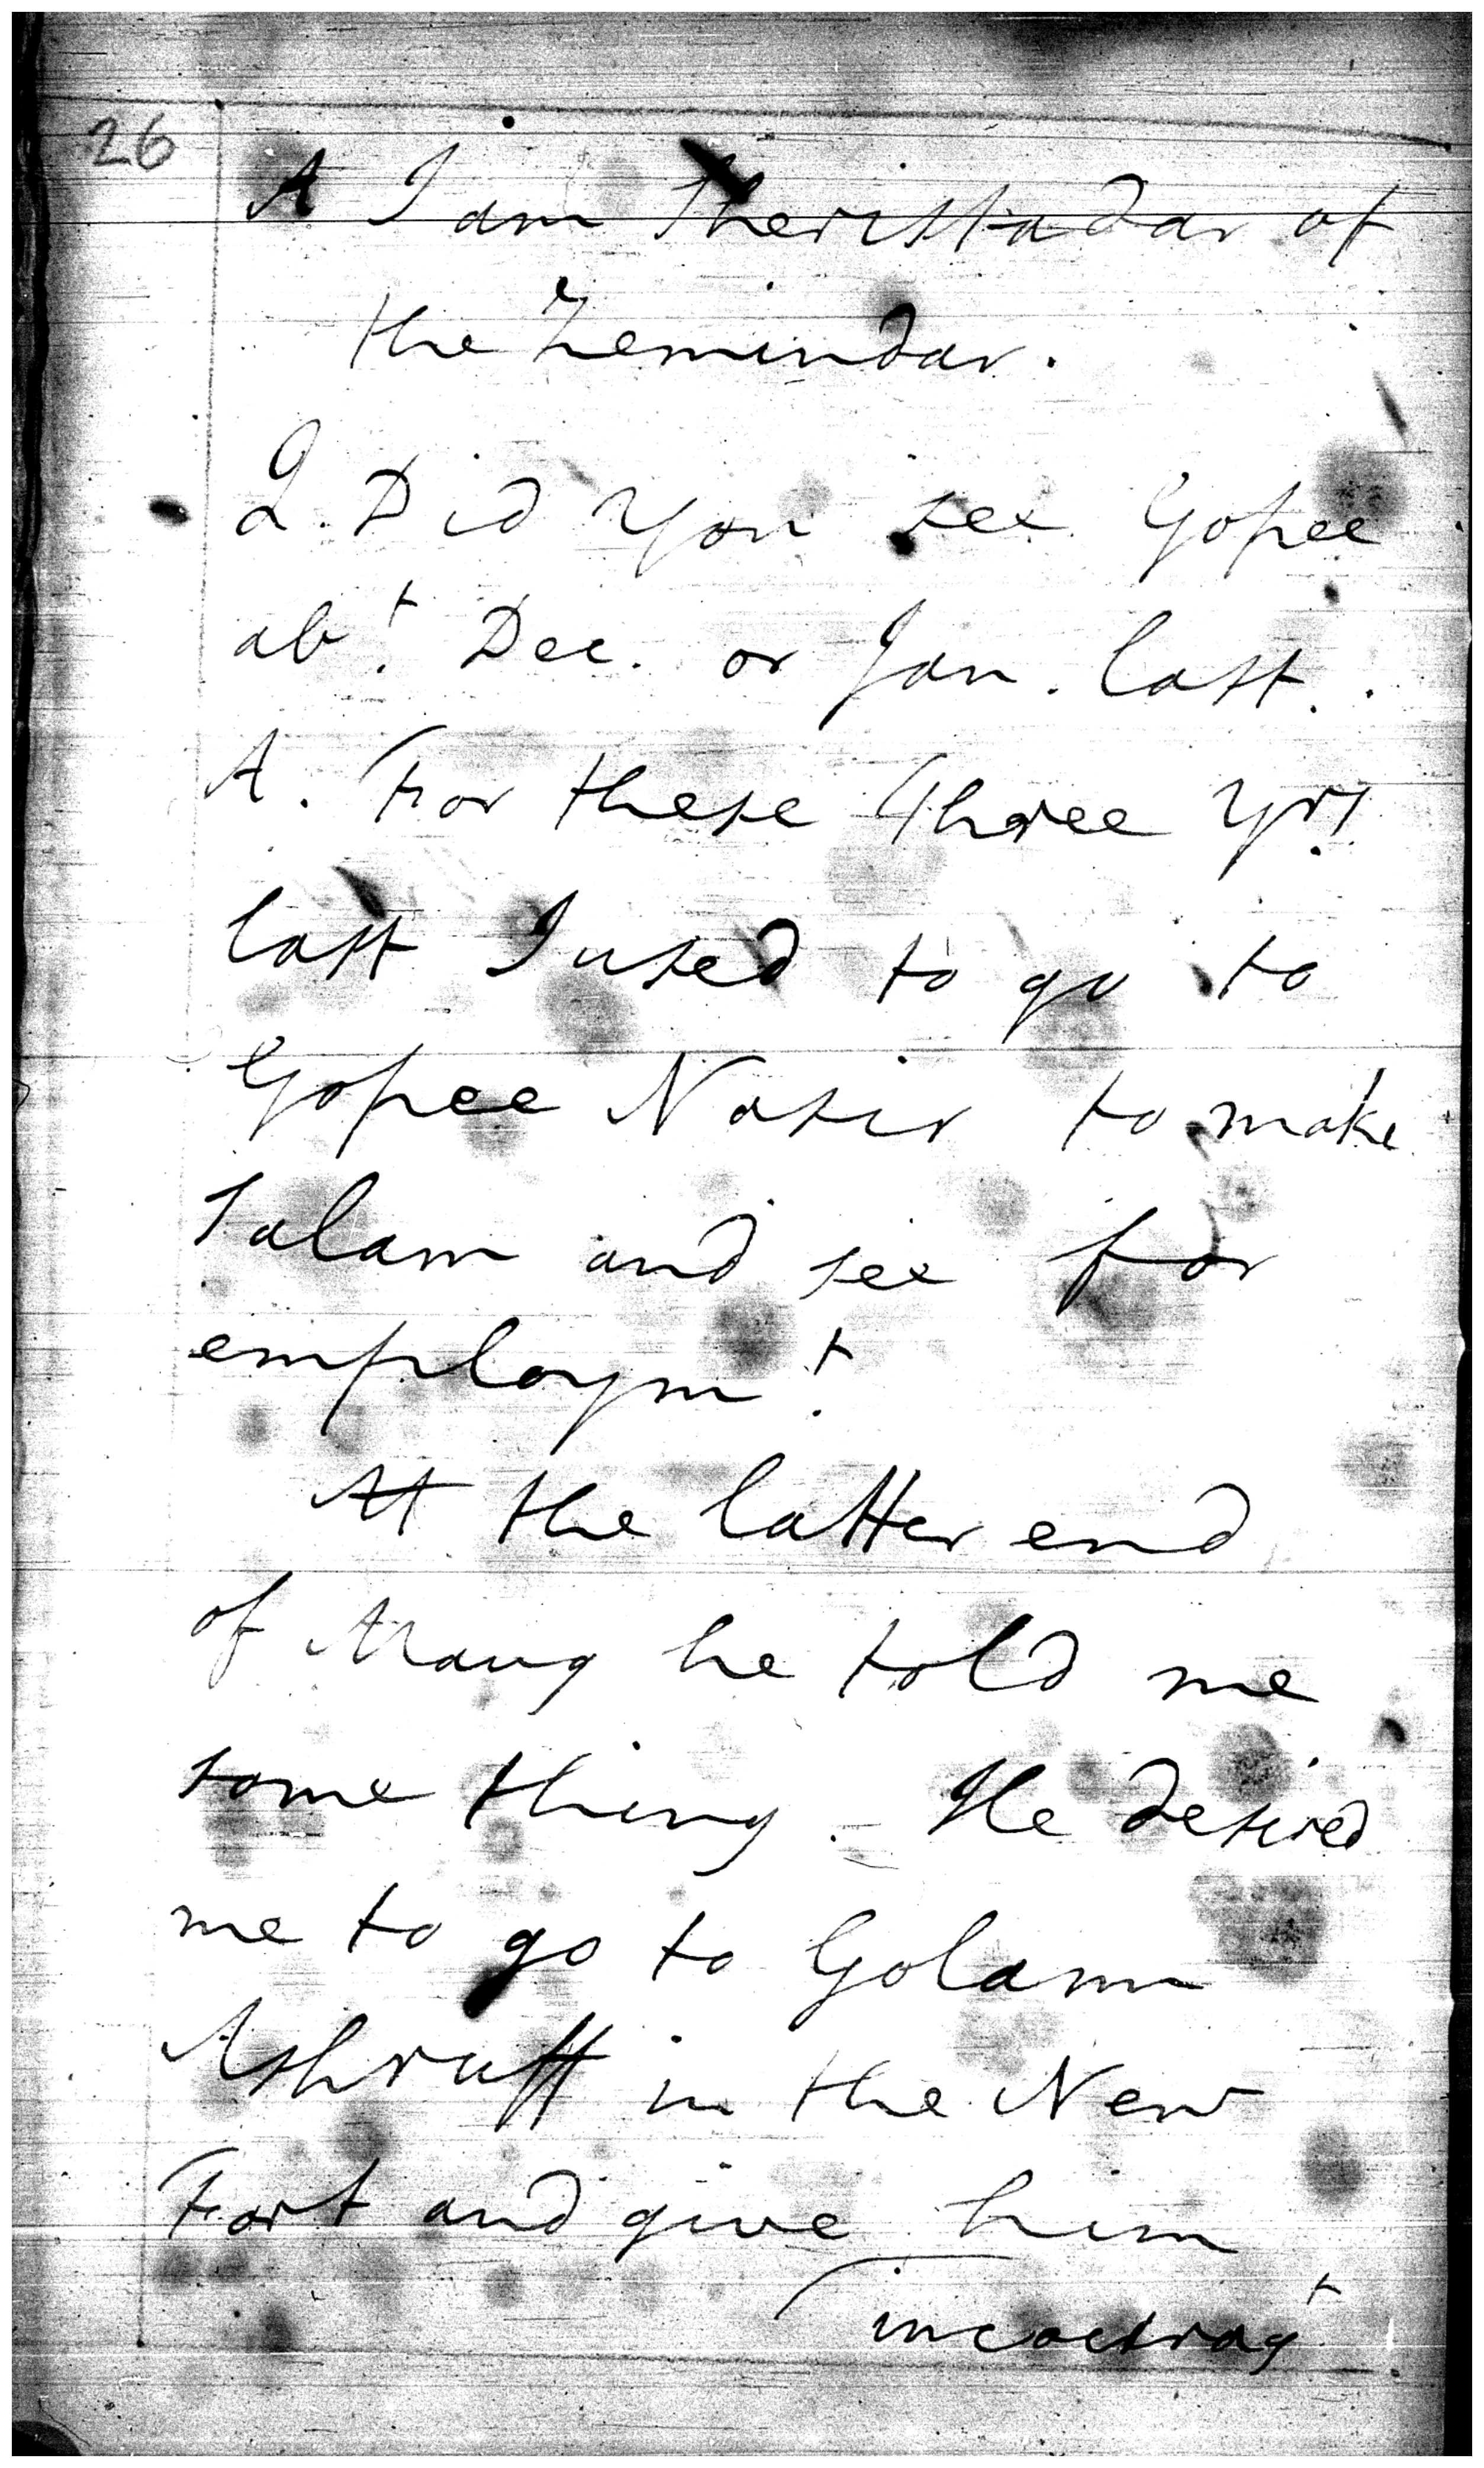 26
A I am Sheristadar of
the Zemindar.
Q. Did You see Gopee
abt. Dec. or Jan. last.
A. For these three Yrs.
last I used to go to
Gopee Nasir to make
Salam and see for
employmt.
At the latter end
of Maug he told me
some thing. He desired
me to go to Golam
Ashruff in the New
Fort and give him